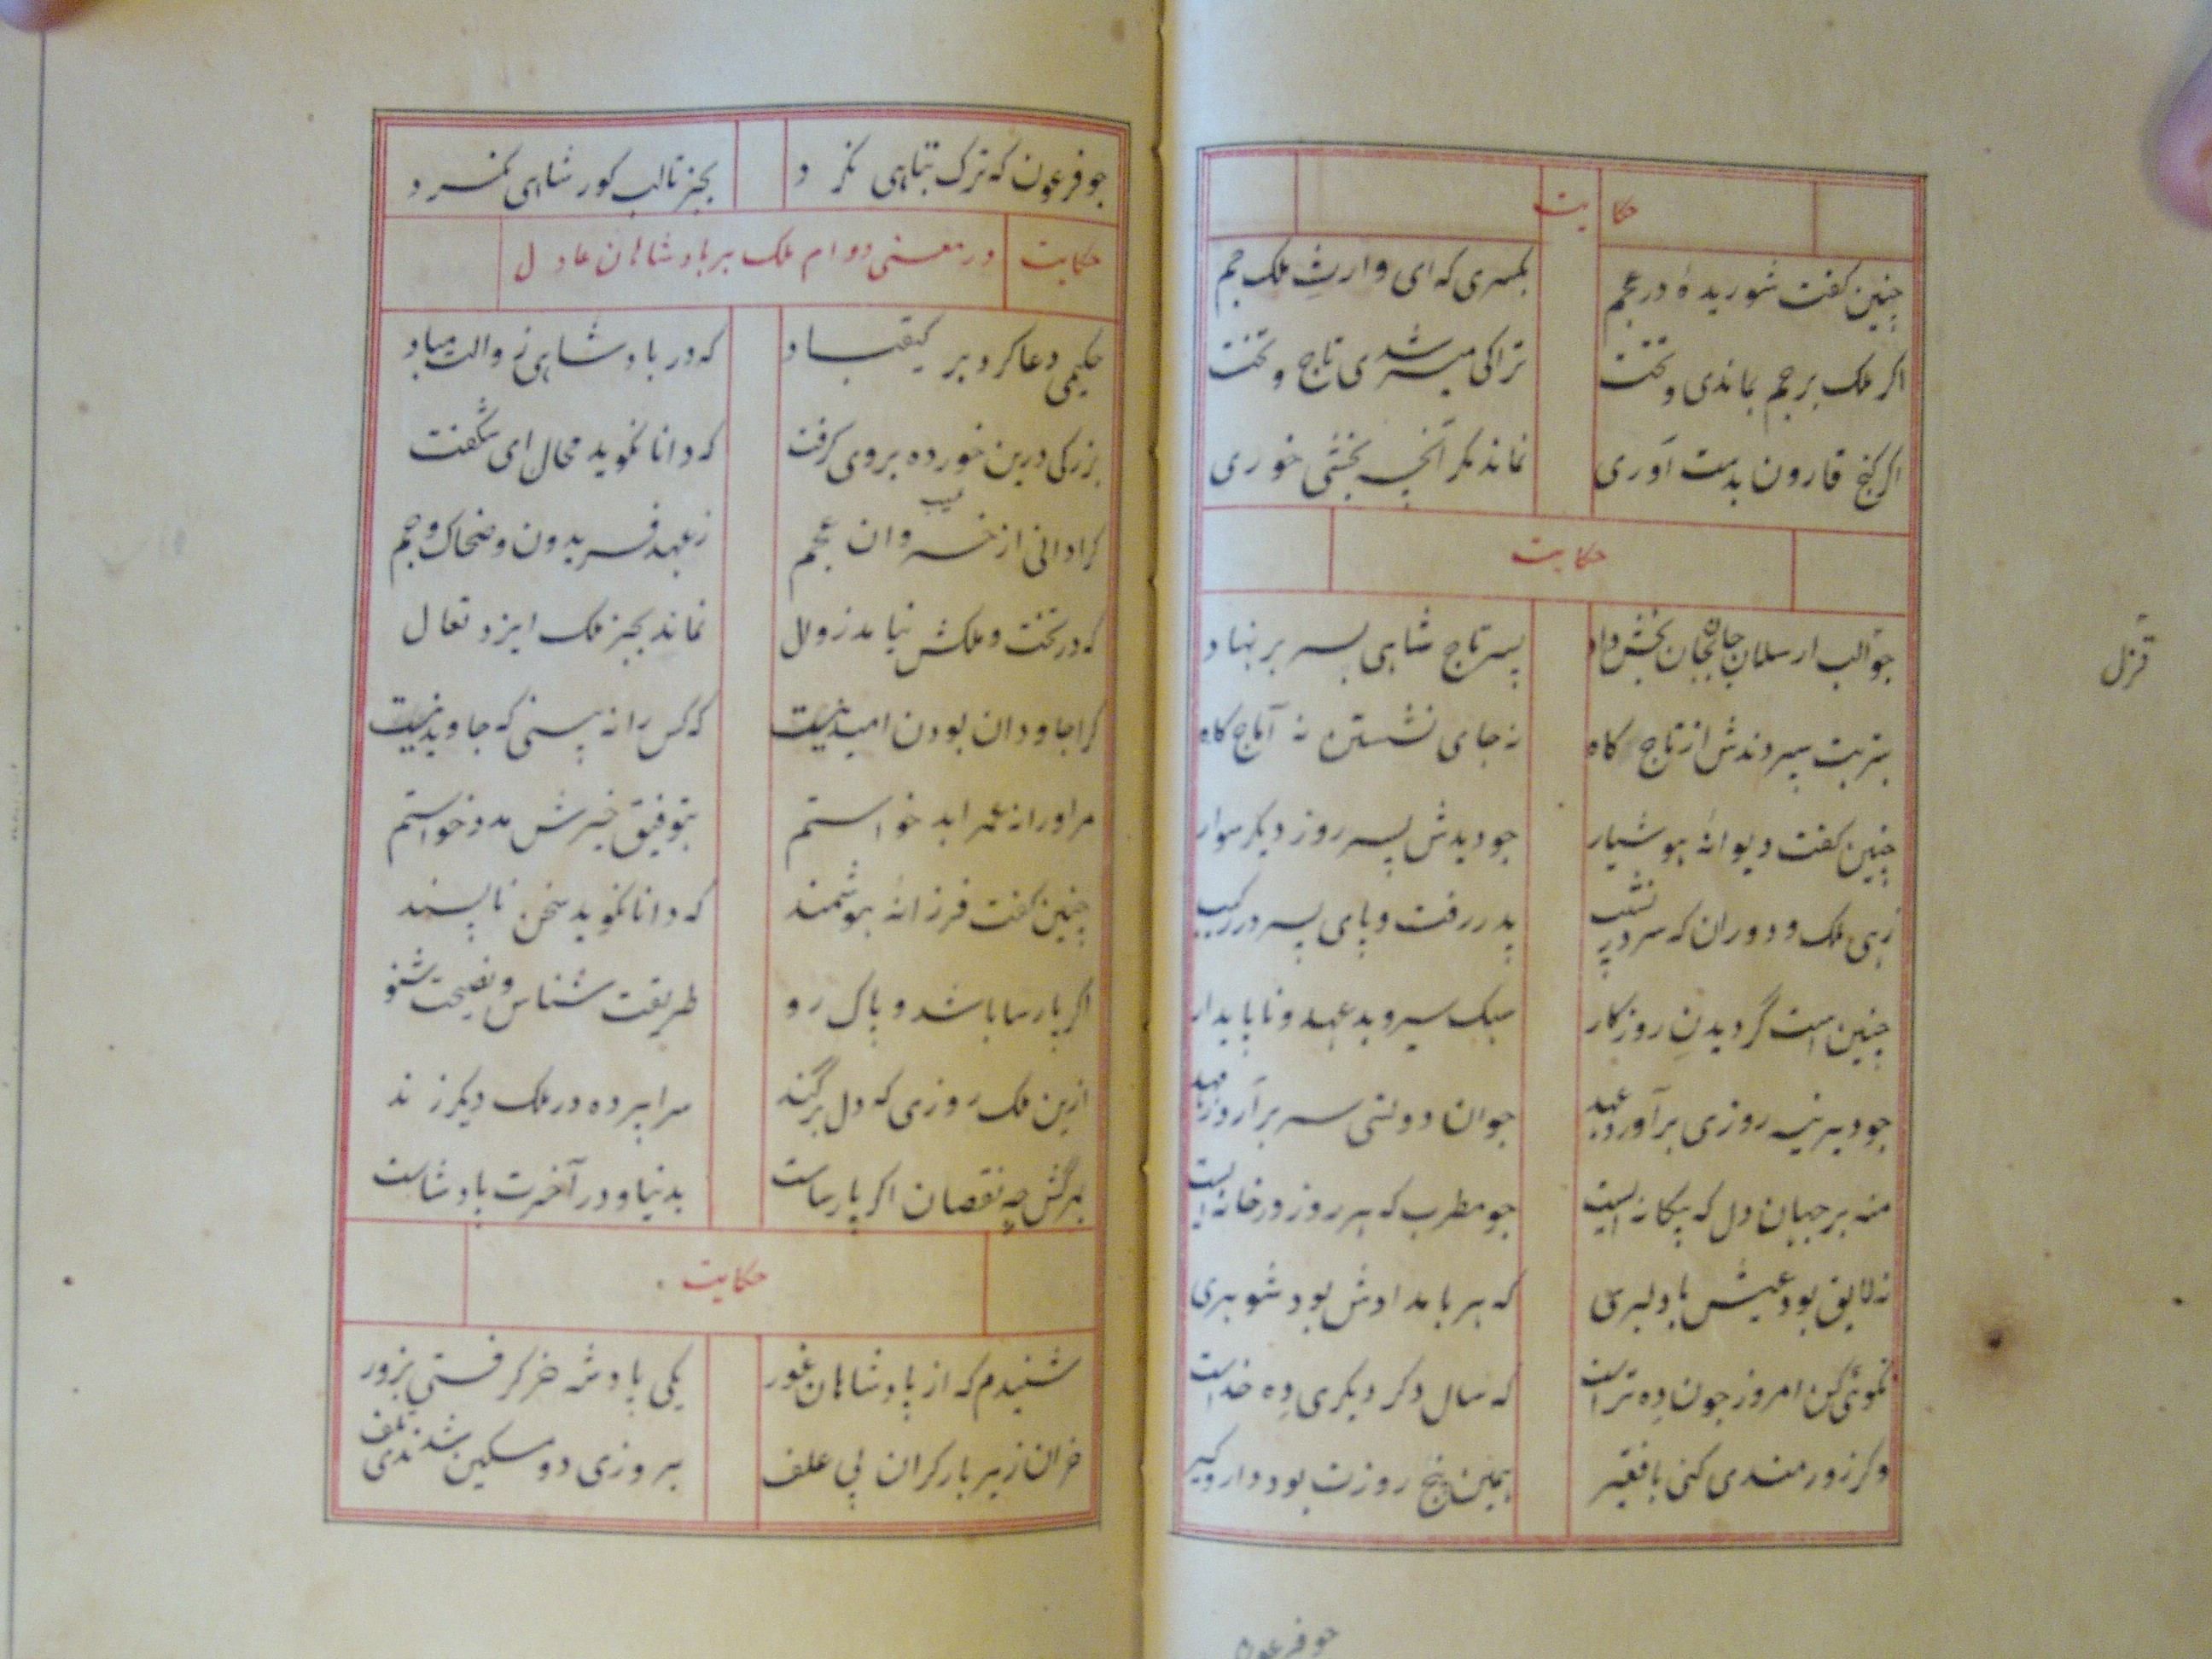 حکایت
چنین کفت شوریدهٔ در عجم بکسری که ای وارثِ ملک جم
اکر ملک بر جم بماندی و تخت ترا کی میسر شدی تاج و تخت
اکر کنج قارون بدست آوری نماند مکر آنچه بخشی خوری
حکایت
جو الب ارسلان جان بجان بخش داد پسر تاج شاهی بسر بر نهاد
قزل
بتربت سپردندش از تاج کاه نه جای نشستن نه آماج کاه
چنین کفت دیوانهٔ هوشیار جو دیدش پسر روز دیکر سوار
زهی ملک و دوران که سر در نشیب پدر رفت و پای پسر در رکیب
چنین است گردیدنِ روزکار سبک سیر و بد عهد و ناپایدار
جو دیرینه روزی برآورد عهد جوان دولتی سر برآرد زمهد
منه بر جهان دل که بیکانه ایست جو مطرب که هر روز در خانه ایست
نه لایق بود عیش با دلبری که هر بامدادش بود شوهری
نکوئی کن امروز جون دِه تراست که سال دکر دیکری دِه خداست
وکر زورمندی کنی با فقیر همین پنج روزت بود دار و کیر
جو فرعون
جو فرعون که ترک تباهی نکرد بجز تا لب کور شاهی نکرد
حکایت در معنی دوام ملک بر پادشاهان عادل
حکیمی دعا کرد بر کیقباد که در پادشاهی زوالت مباد
بزرکی درین خورده بر وی کرفت که دانا نکوید محال ای شگفت
کرا دانی از خسروان عجم ز عهد فریدون و ضحاک و جم
که در تخت و ملکش نیامد زوال نماند بجز ملک ایزد تعال
کرا جاودان بودن امید نیست که کس را نه بینی که جاوید نیست
مر او را نه عمر ابد خواستم بتوفیق خیرش مدد خواستم
چنین کفت فرزانهٔ هوشمند که دانا نکوید سخن ناپسند
اکر پارسا باشد و پاک رو طریقت شناس و نصیحت شنو
ازین ملک روزی که دل برگند سراپرده در ملک دیکر زند
بمرگش چه نقصان اکر پارساست بدنیا و در آخرت پادشاست
حکایت
شنیدم که از پادشاهان غور یکی پادشه خر کرفتی بزور
خران زیر بار کران بی علف بروزی دو مسکین شدندی تلف